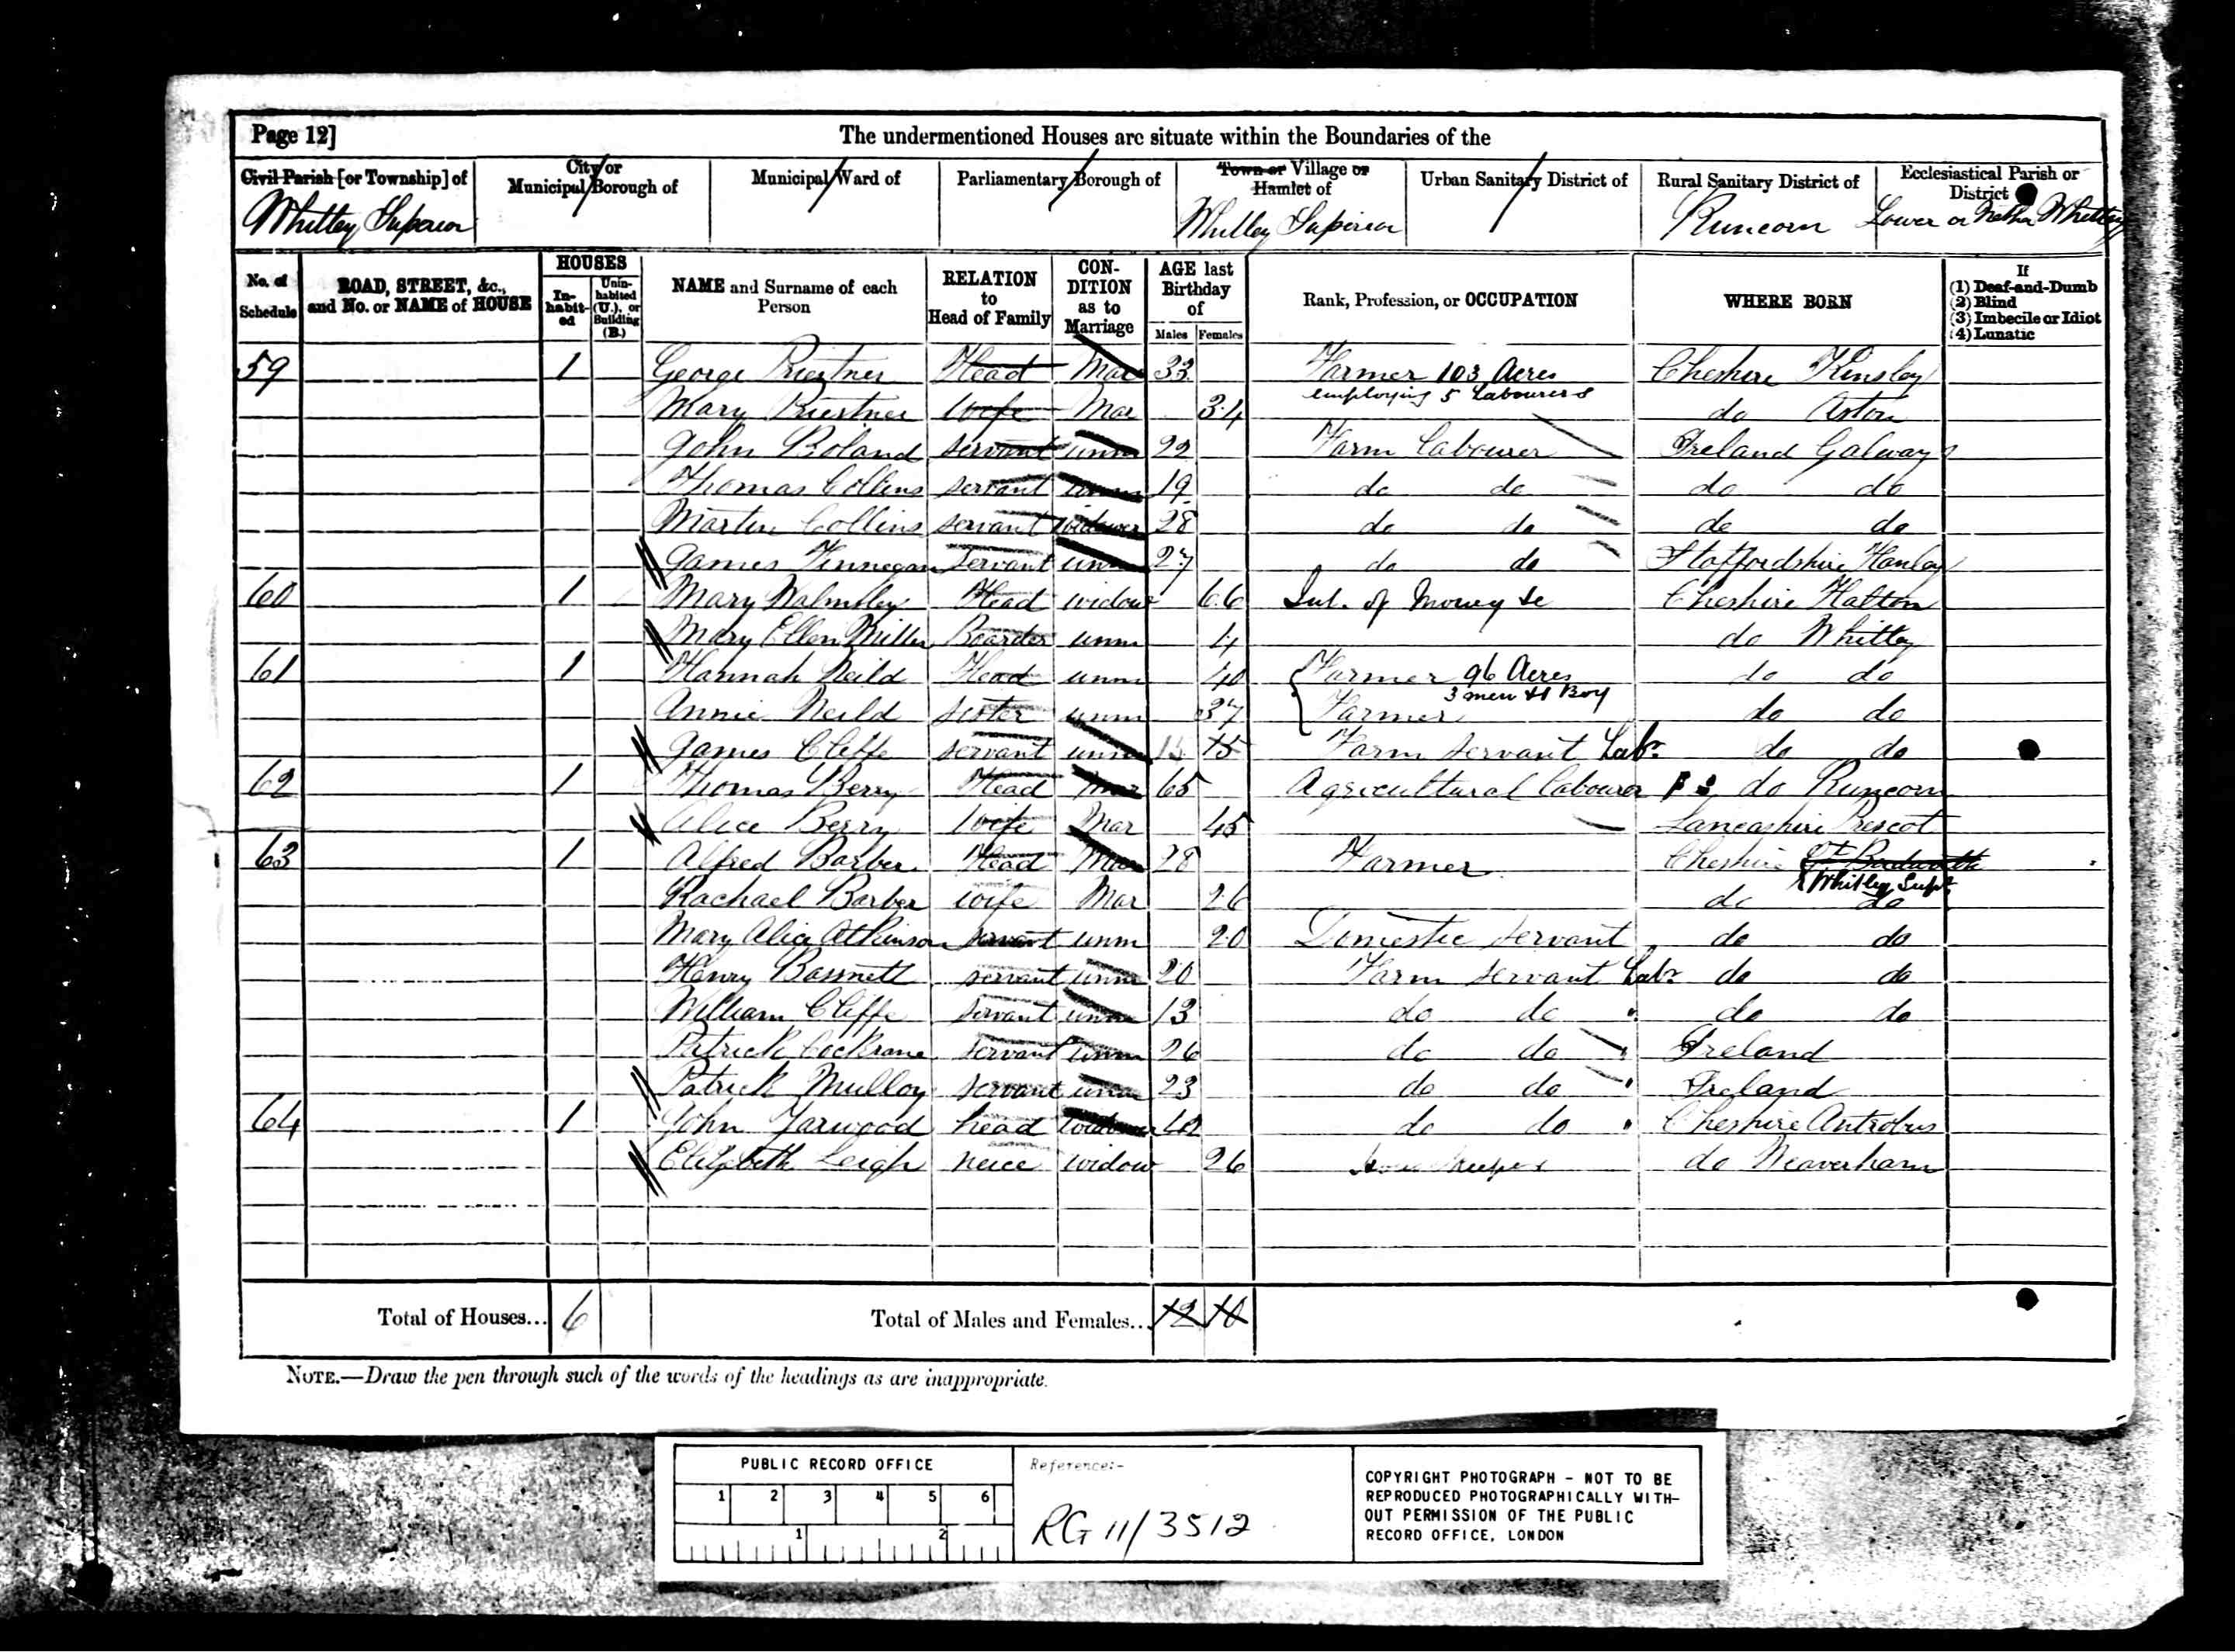 Page 12]
The undermentioned Houses are situate within the Boundaries of the
Civil Parish [or Township] of
City or Municipal Borough of
Municipal Ward of
Parliamentary Borough of
Town or Village or Hamlet of
Urban Sanitary District of
Rural Sanitary District of
Ecclesiastical Parish or District of
Whitley Superior
Whitley Superior
Runcorn
Lower or Nether Whitley
No. of Schedule
ROAD, STREET, &c., and No. or NAME of HOUSE
HOUSES
In-habit-ed
Unin-habited (U.), or Building (B.)
NAME and Surname of each Person
RELATION to Head of Family
CON-DITION as to Marriage
AGE last Birthday of
Males
Females
Rank, Profession, or OCCUPATION
WHERE BORN
If
(1) Deaf-and-Dumb
(2) Blind
(3) Imbecile or Idiot
(4) Lunatic
59 1 George Priestner Head Mar 33 Farmer 103 Acres Cheshire Kinsley
employing 5 Labourers
Mary Priestner Wife Mar 34 do Aston
John Boland servant unm 22 Farm Labourer Ireland Galway
Thomas Collins servant unm 19 do do do do
Martin Collins servant widower 28 do do do do
James Finnegan servant unm 27 do do Staffordshire Hanley
60 1 Mary Walmsley Head widow 66 Int. of Money Cheshire Halton
Mary Ellen Boarder unm 4 do Whitley
61 1 Hannah Neild Head unm 40 Farmer 96 Acres do do
3 men & 1 Boy
Annie Neild sister unm 37 Farmer do do
James Cliffe servant unm 15 15 Farm servant Labr do do
62 1 Thomas Berry Head Mar 65 Agricultural Labourer do Runcorn
Alice Berry Wife Mar 45 Lancashire Prescot
63 1 Alfred Barber Head Mar 28 Farmer Cheshire
Whitley Supr
Rachael Barber wife Mar 26 do do
Mary Alice Atkinson servant unm 20 Domestic servant do do
Henry Basnett servant unm 20 Farm servant Labr do do
William Cliffe servant unm 13 do do do do
Patrick Cockrane servant unm 26 do do Ireland
Patrick Mulloy servant unm 23 do do Ireland
64 1 John Yarwood head widower do do Cheshire Antrobus
Elizabeth Leigh neice widow 26 House Keeper do Weaverham
Total of Houses... 6
Total of Males and Females... 12 10
NOTE.—Draw the pen through such of the words of the headings as are inappropriate.
PUBLIC RECORD OFFICE
1 2 3 4 5 6
1 2
Reference:-
RG 11/3512
COPYRIGHT PHOTOGRAPH - NOT TO BE
REPRODUCED PHOTOGRAPHICALLY WITH-
OUT PERMISSION OF THE PUBLIC
RECORD OFFICE, LONDON